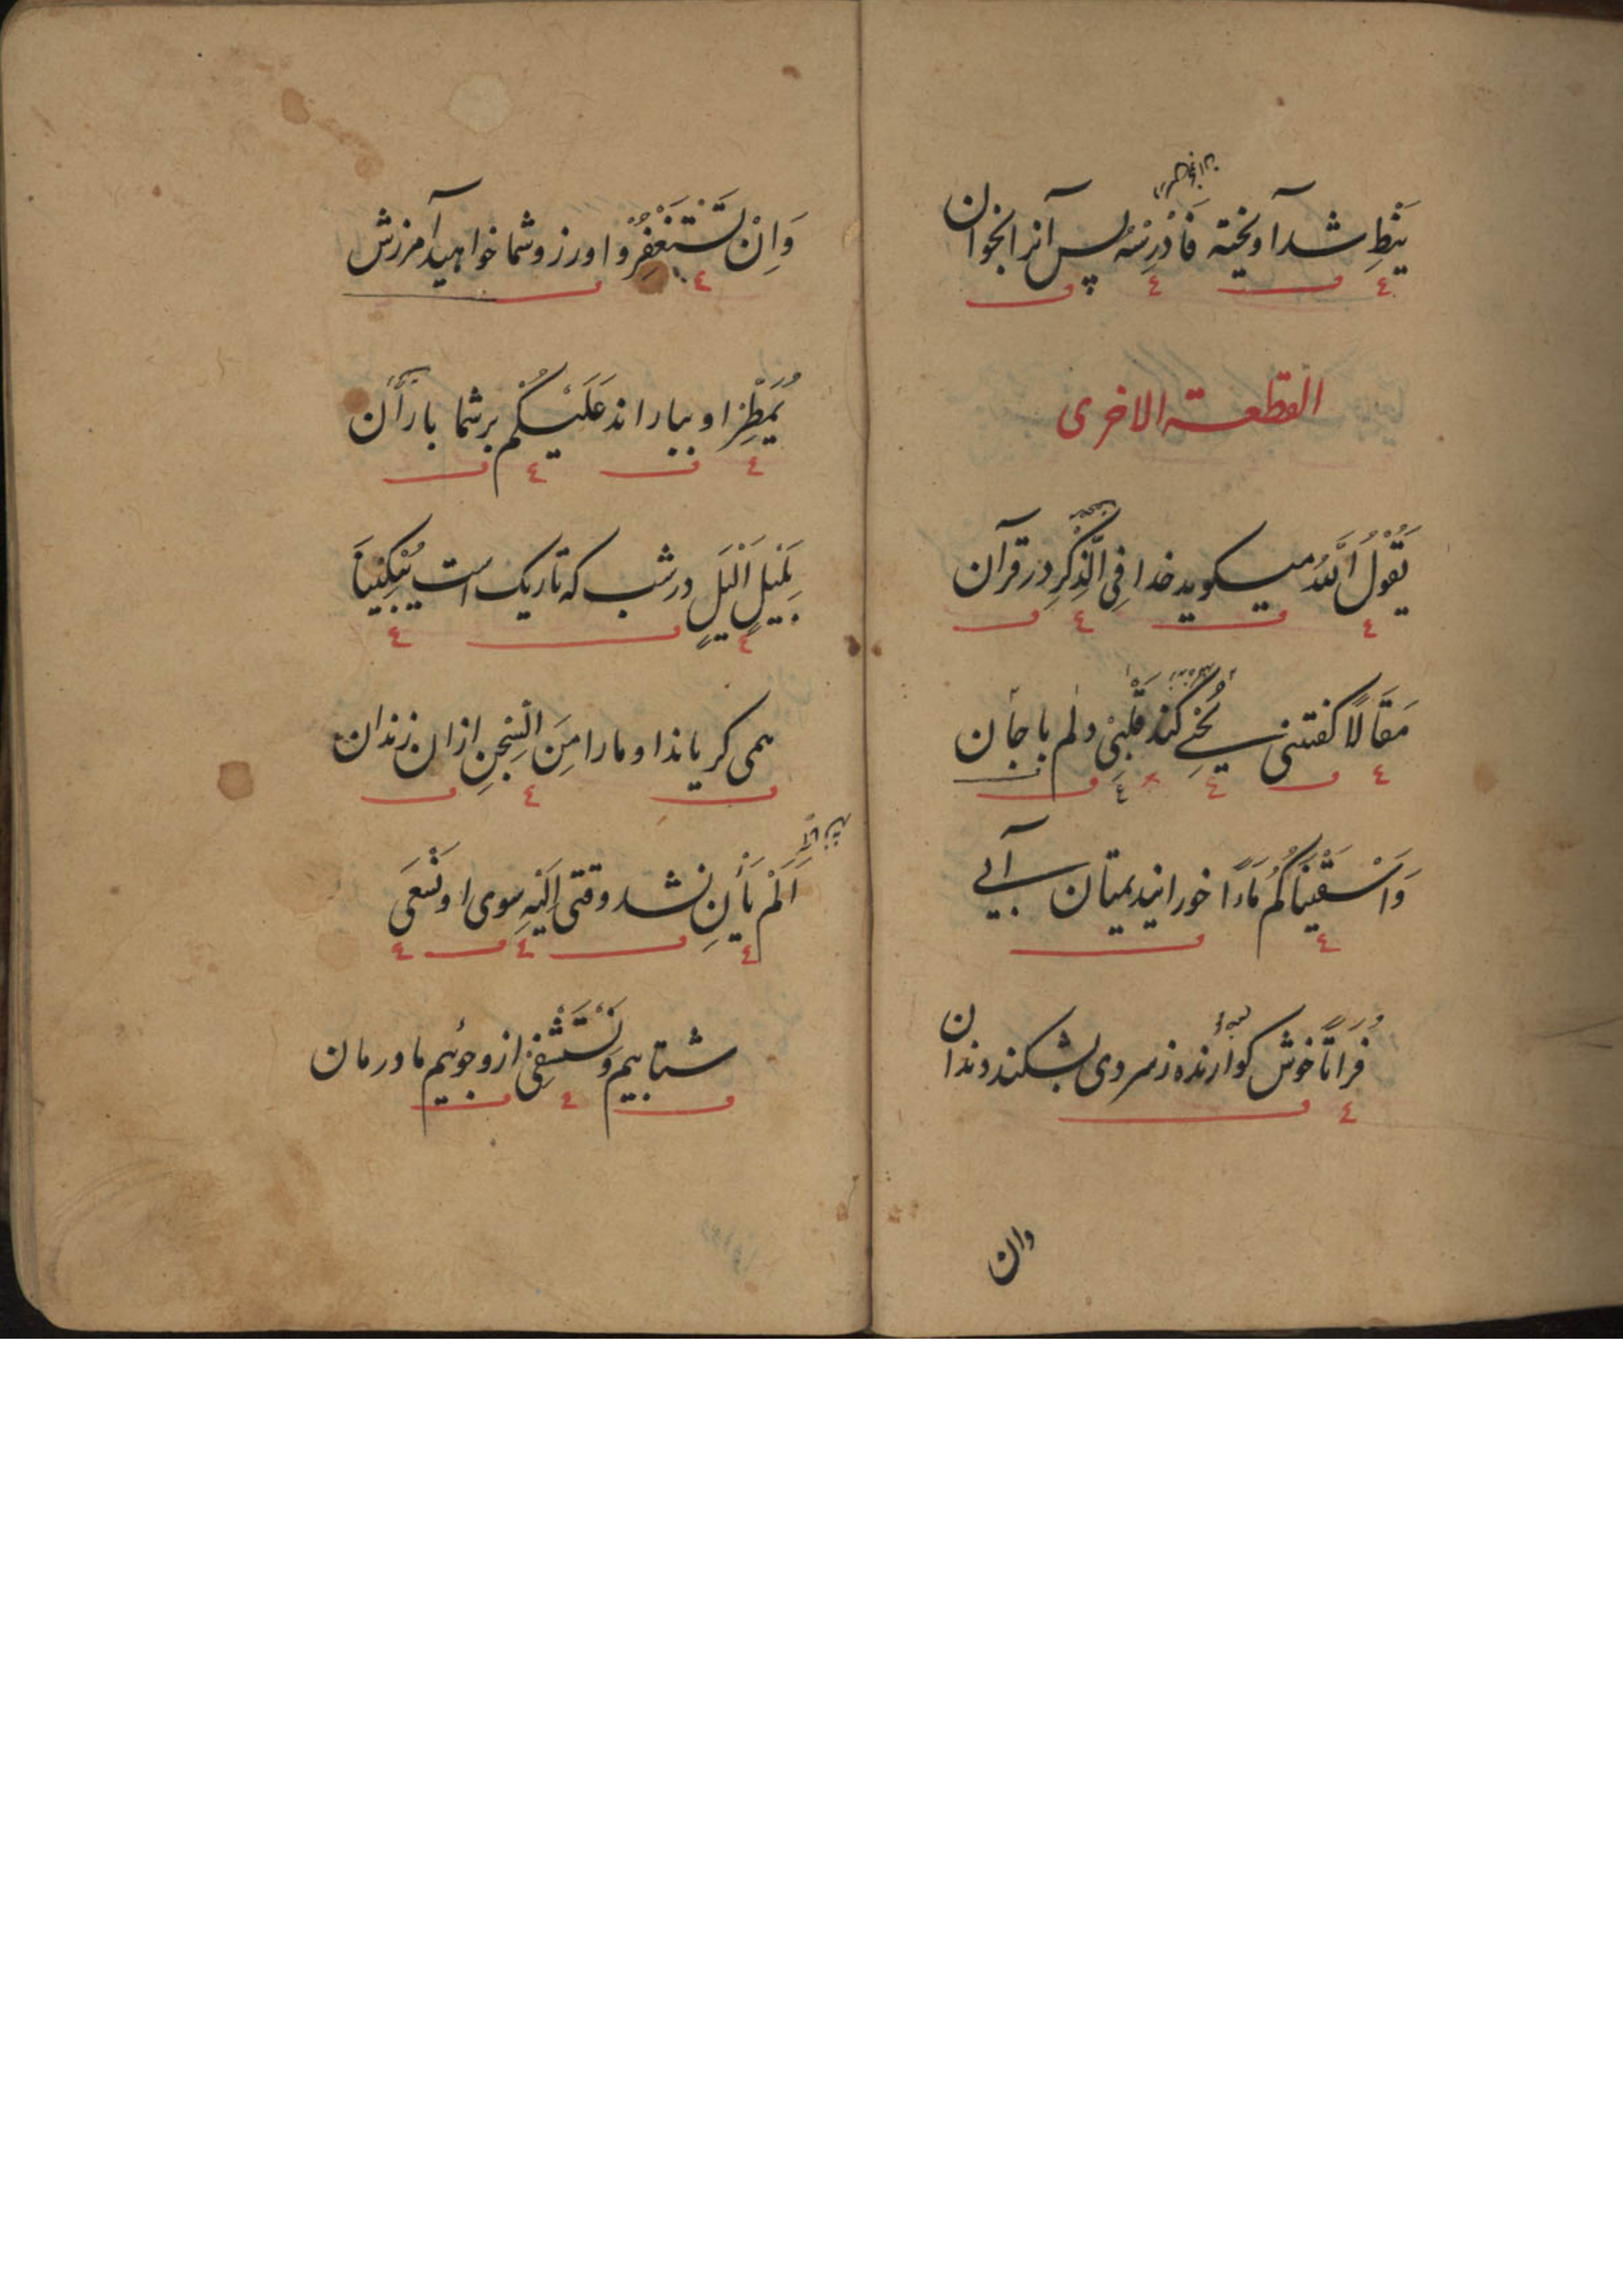 نیطِ شد آویخته فَادْرِسْهُ پس آنرا بخوان
القطعة الاخری
یَقُوْلُ اللّٰهُ میکوید خدا فِی الذِّکْرِ در قرآن
مَقَالًا کفتنی یُحْیِ کند قَلْبِیْ دلم با جان
وَاَسْقَیْنَاکُمْ مَاءً خورانیدیمتان آبی
فُرَاتًا خوش کوارنده ز سردی بشکند دندان
وان
وَاِنْ تَسْتَغْفِرُوْا ورزو شما خواهید آمرزش
یُمْطِرْ او بباراند عَلَیْکُمْ بر شما باران
بِلَیْلٍ اَلْیَلٍ در شب که تاریک است یُبْکِیْنَا
همی کریاند او مارا مِنَ السِّجْنِ ازان زندان
اَلَمْ یَأْنِ نشد وقتی اِلَیْهِ سوی او نَسْعَی
شتابیم وَنَسْتَشْفِیْ ازو جوئیم ما درمان